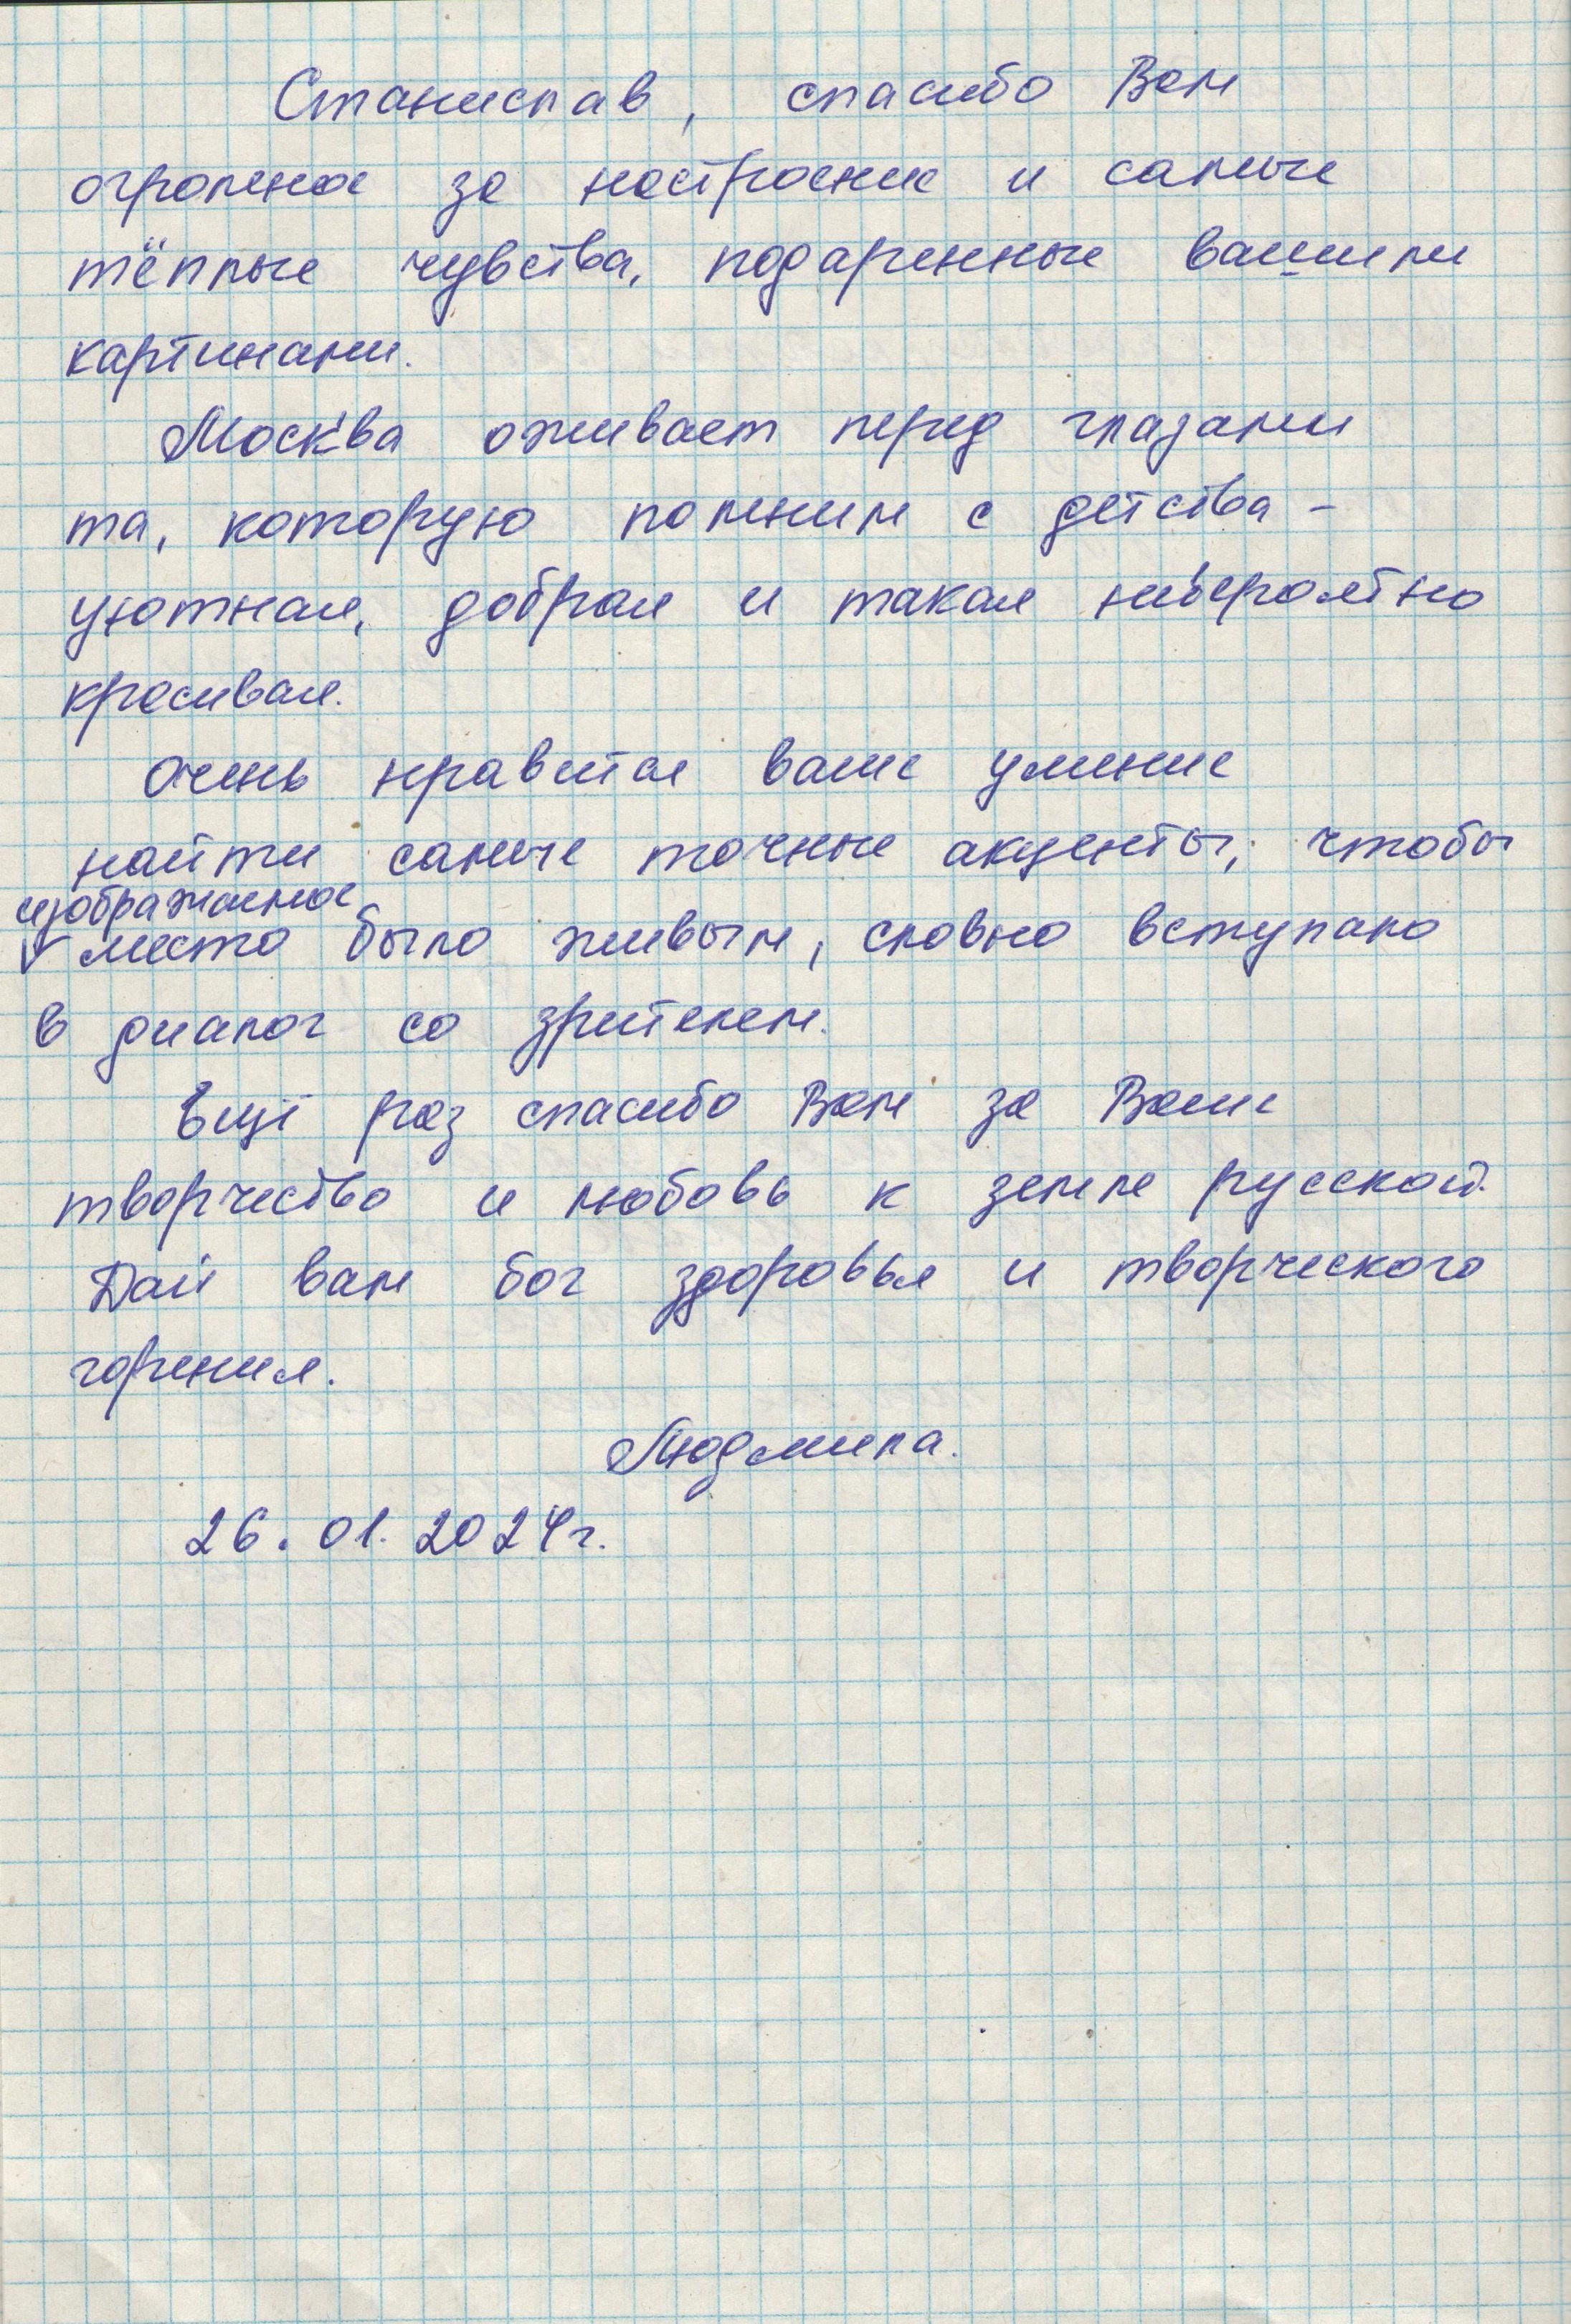 Станислав, спасибо Вам
огромное за настроение и самые
тёплые чувства, подаренные вашими
картинами.
Москва оживает перед глазами
та, которую помним с детства -
уютная, добрая и такая невероятно
красивая.
Очень нравится ваше умение
найти самые точные акценты, чтобы
изображаемое
место было живым, словно вступало
в диалог со зрителем.
Ещё раз спасибо Вам за Ваше
творчество и любовь к земле русской.
Дай вам бог здоровья и творческого
горения.
Людмила.
26.01.2024г.